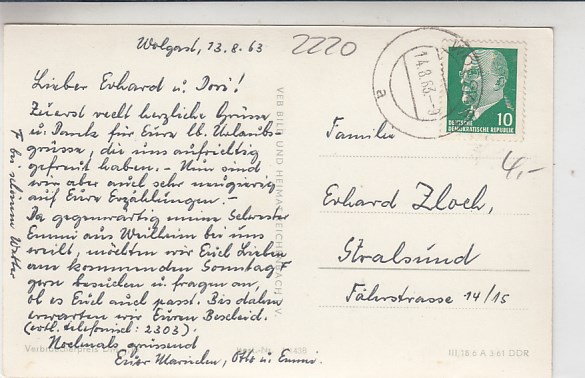 Wolgast, 13.8.63
2220
Lieber Erhard u. Dori!
Zuerst recht herzliche Grüsse
u. Dank für Eure lb. Urlaubs-
grüsse, die uns aufrichtig
gefreut haben. – Nun sind
wir aber auch sehr neugierig
auf Eure Erzählungen. –
Da gegenwärtig meine Schwester
Emmi aus Weilheim bei uns
weilt, möchten wir Euch Lieben
am kommenden Sonntag +
gern besuchen u. fragen an,
ob es Euch auch passt. Bis dahin
erwarten wir Euren Bescheid.
(evtl. telefonisch: 2303).
Nochmals grüssend
Eure Marinchen, Otto u. Emmi.
+ bei schönem Wetter
VEB BILD UND HEIMAT REICHENBACH I. V.
Verbraucherpreis
III/18/6 A 3/61 DDR
14.8.63
a
10
DEUTSCHE
DEMOKRATISCHE REPUBLIK
4,-
Familie
Erhard Zloch,
Stralsund
Fährstrasse 14/15